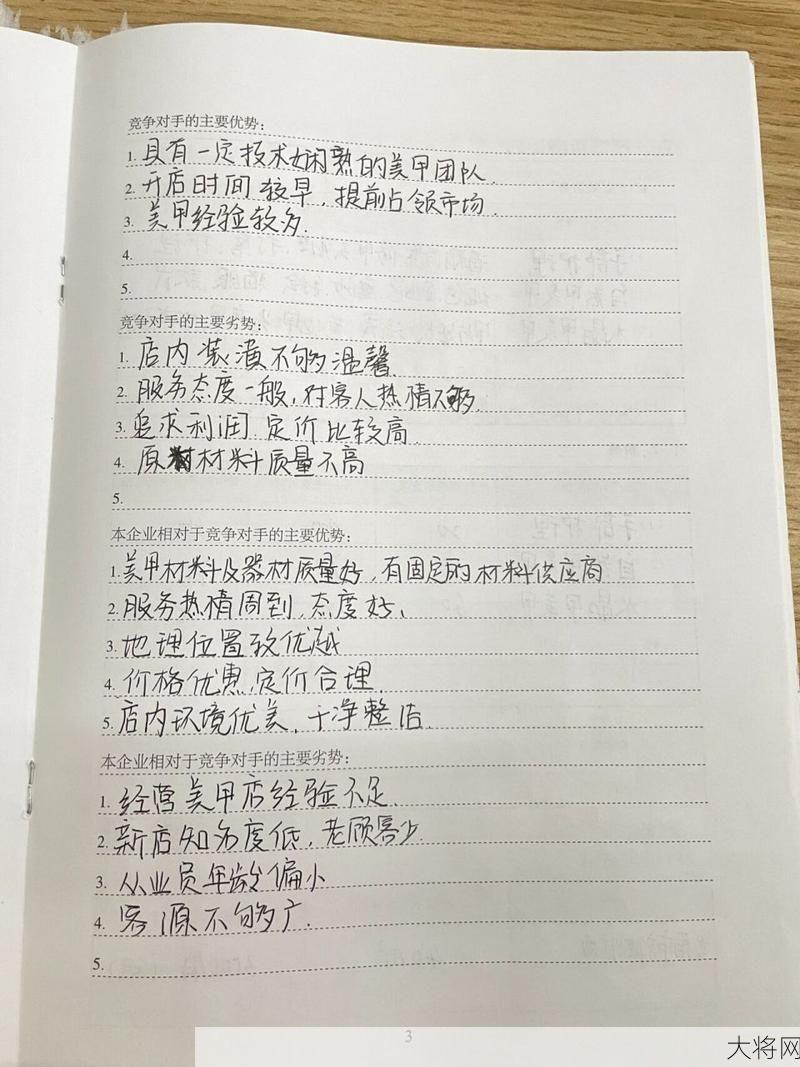 竞争对手的主要优势：
1. 具有一定技术娴熟的美甲团队.
2. 开店时间较早，提前占领市场.
3. 美甲经验较多.
4.
5.
竞争对手的主要劣势：
1. 店内装潢不够温馨.
2. 服务态度一般，对客人热情不够.
3. 追求利润 定价比较高.
4. 原材料质量不高
5.
本企业相对于竞争对手的主要优势：
1. 美甲材料及器材质量好，有固定的材料供应商
2. 服务热情周到，态度好、
3. 地理位置较优越
4. 价格优惠，定价合理.
5. 店内环境优美，干净整洁.
本企业相对于竞争对手的主要劣势：
1. 经营美甲店经验不足.
2. 新店知名度低，老顾客少.
3. 从业员年龄偏小
4. 客源不够广.
5.
3
大将网